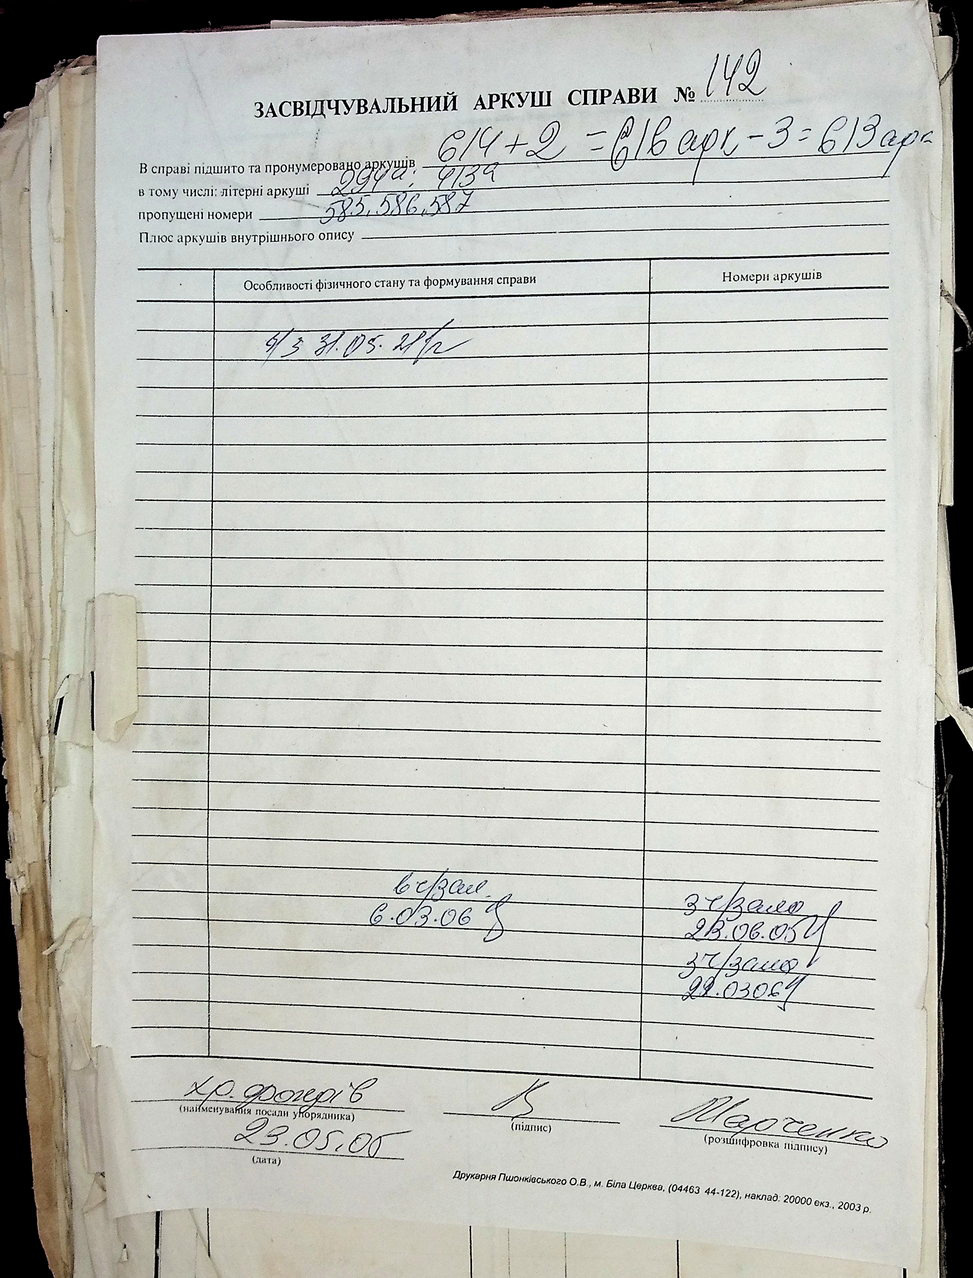 ЗАСВІДЧУВАЛЬНИЙ АРКУШ СПРАВИ № 142
В справі підшито та пронумеровано аркушів 614 + 2 = 616 арк - 3 = 613 арк
в тому числі: літерні аркуші 294а; 413а
пропущені номери 585, 586, 587
Плюс аркушів внутрішнього опису
Особливості фізичного стану та формування справи
Номери аркушів
31.05.21
6.03.06
23.06.05
22.0306
хр. фондів
Марченко
(найменування посади упорядника)
(підпис)
(розшифровка підпису)
23.05.05
(дата)
Друкарня Пшонківського О.В., м. Біла Церква, (04463 44-122), наклад: 20000 екз., 2003 р.